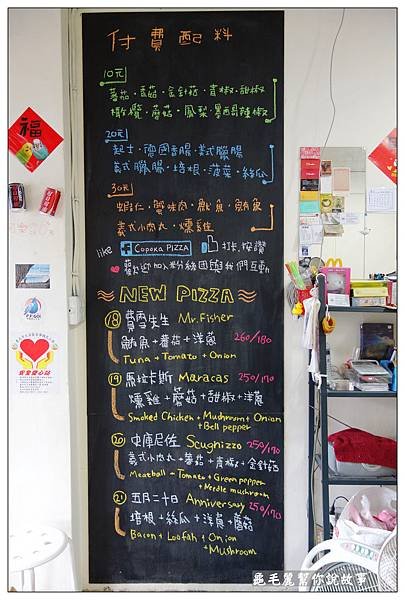 付費配料
10元
蕃茄・香菇・金針菇・青椒・甜椒
橄欖・蘑菇・鳳梨・墨西哥辣椒
20元
起士・德國香腸・美式臘腸
義式臘腸・培根・菠菜・絲瓜
30元
蝦仁・蟹味肉・魷魚・鮪魚
義式小肉丸・燻雞
like f Copoka PIZZA 打卡・按讚
歡迎加入粉絲團跟我們互動
NEW PIZZA
⑱ 費雪先生 Mr.Fisher
鮪魚+蕃茄+洋蔥 260/180
Tuna + Tomato + Onion
⑲ 馬拉卡斯 Maracas 250/170
燻雞+蘑菇+甜椒+洋蔥
Smoked Chicken + Mushroom + Onion
+ Bell pepper
⑳ 史庫尼佐 Scughizzo 250/170
義式小肉丸+蕃茄+青椒+金針菇
Meatball + Tomato + Green pepper
+ Needle mushroom
㉑ 五月二十日 Anniversary 250/170
培根+絲瓜+洋蔥+蘑菇
Bacon + Loofah + Onion
+ Mushroom
福
龜毛麗幫你說故事